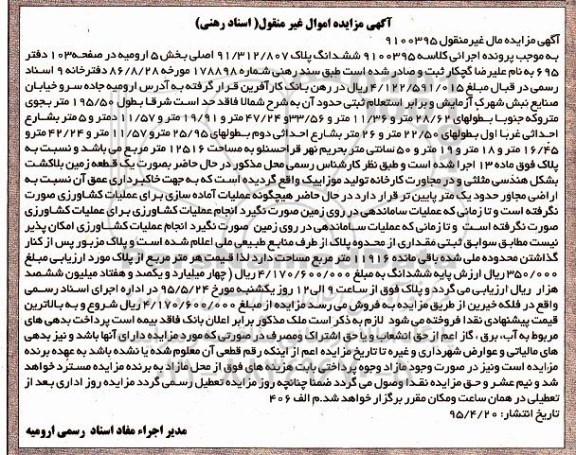 آگهی مزایده اموال غیر منقول( اسناد رهنی)
آگهی مزایده مال غیر منقول ۹۱۰۰۳۹۵
به موجب پرونده اجرائی کلاسه ۹۱۰۰۳۹۵ ششدانگ پلاک ۹۱/۳۱۲/۸۰۷ اصلی بخش ۵ ارومیه در صفحه۱۰۳ دفتر
۶۹۵ به نام علیرضا گچکار ثبت و صادر شده است طبق سند رهنی شماره ۱۷۸۸۹۸ مورخه ۸۶/۸/۲۸ دفترخانه ۹ اسناد
رسمی در قبال مبلغ ۴/۱۲۲/۵۹۱/۰۱۵ ریال در رهن بانک کارآفرین قرار گرفته به آدرس ارومیه جاده سرو خیابان
صنایع نبش شهرک آزمایش و برابر استعلام ثبتی حدود آن به شرح شمالا فاقد حد است شرقا بطول ۱۹۵/۵۰ متر بجوی
متروکه جنوبا بطولهای ۲۸/۶۲ متر و ۱۱/۳۶ متر و ۳۳/۵۶و ۴۷/۲۴ متر و ۱۹/۸۱ متر و ۱۱/۵۷ دمتر و ۵ متر بشارع
احداثی غربا اول بطولهای ۲۲/۵۰ متر و ۲۶ متر بشارع احداثی دوم بطولهای ۲۵/۹۵ متر و ۱۱/۵۷ متر و ۲۴/۴۲ متر و
۱۶/۴۵ متر و ۱۸ متر و ۱۹ متر و ۵۰ سانتی متر بحریم نهر قراحسنلو به مساحت ۱۲۵۱۶ متر مربع می باشد و نسبت به
پلاک فوق ماده ۱۳ اجرا شده است و طبق نظر کارشناس رسمی محل مذکور در حال حاضر بصورت یک قطعه زمین بلاکشت
بشکل هندسی مثلثی و در مجاورت کارخانه تولید موزاییک واقع گردیده است که به جهت خاکبرداری عمق آن نسبت به
اراضی مجاور حدود یک متر پایین تر قرار دارد در حال حاضر هیچگونه عملیات آماده سازی برای عملیات کشاورزی صورت
نگرفته است و تا زمانی که عملیات ساماندهی در روی زمین صورت نگیرد انجام عملیات کشاورزی برای عملیات کشاورزی
صورت نگرفته است و تا زمانی که عملیات ساماندهی در روی زمین صورت نگیرد انجام عملیات کشاورزی امکان پذیر
نیست مطابق سوابق ثبتی مقداری از محدوه پلاک از طرف منابع طبیعی ملی اعلام شده است و پلاک مزبور پس از کنار
گذاشتن محدوده ملی شده باقی مانده ۱۱۹۱۶ متر مربع مساحت دارد لذا قیمت هر متر مربع از پلاک مورد ارزیابی مبلغ
۳۵۰/۰۰۰ ریال ارزش پایه ششدانگ به مبلغ ۴/۱۷۰/۶۰۰/۰۰۰ ریال (چهار میلیارد و یکصد و هفتاد میلیون ششصد
هزار ریال ارزیابی می گردد و پلاک فوق از ساعت ۹ الی۱۲ روز یکشنبه مورخ ۹۵/۵/۲۴ در اداره اجرای اسناد رسمی
واقع در فلکه خیرین از طریق مزایده به فروش می رسد مزایده از مبلغ ۴/۱۷۰/۶۰۰/۰۰۰ ریال شروع و به بالاترین
قیمت پیشنهادی نقدا فروخته می شود لازم به ذکر است ملک مذکور برابر اعلان بانک فاقد بیمه است پرداخت بدهی های
مربوط به آب، برق ، گاز اعم از حق انشعاب و یا حق اشتراک ومصرف در صورتی که مورد مزایده دارای آنها باشد و نیز بدهی
های مالیاتی و عوارض شهرداری و غیره تا تاریخ مزایده اعم از اینکه رقم قطعی آن معلوم شده یا نشده باشد به عهده برنده
مزایده است ونیز در صورت وجود مازاد وجوه پرداختی بابت هزینه های فوق از محل مازاد به برنده مزایده مسترد خواهد
شد و نیم عشر و حق مزایده نقدا وصول می گردد ضمنا چنانچه روز مزایده تعطیل رسمی گردد مزایده روز اداری بعد از
تعطیلی در همان ساعت ومکان مقرر برگزار خواهد شد.م الف ۴۰۶
تاریخ انتشار: ۹۵/۴/۲۰
مدیر اجراء مفاد اسناد رسمی ارومیه